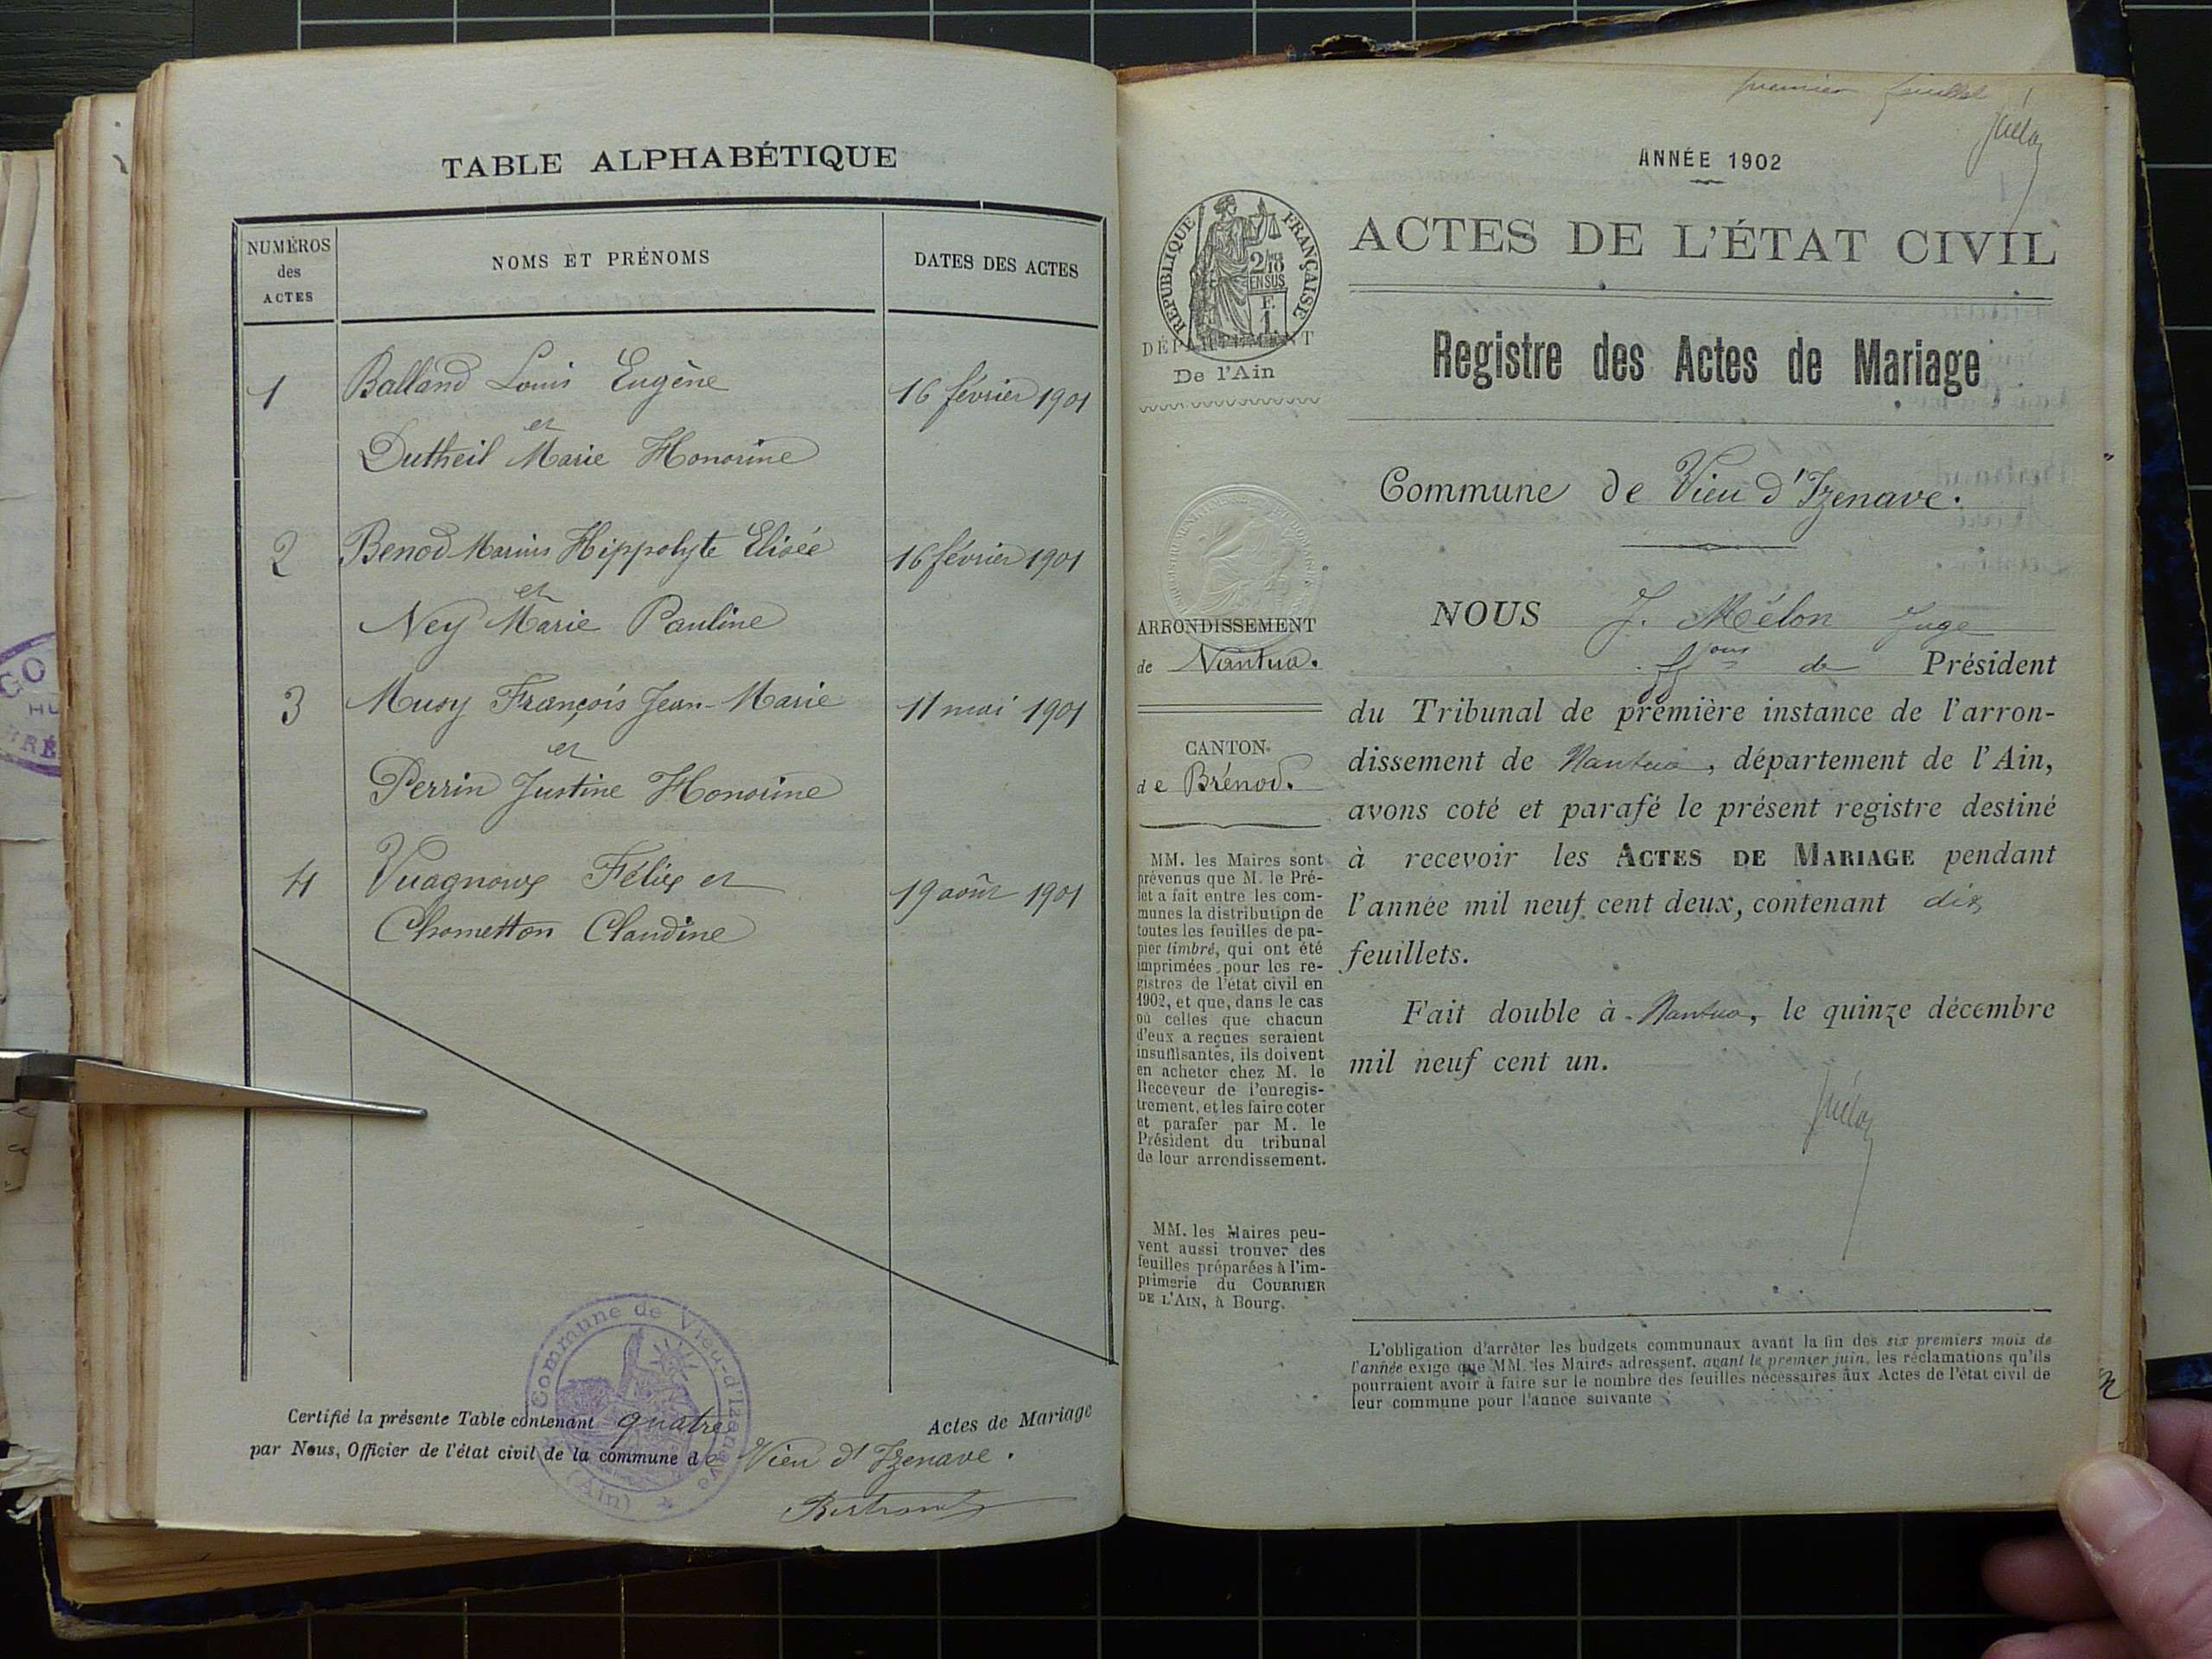 TABLE ALPHABÉTIQUE
NUMÉROS
des
ACTES
NOMS ET PRÉNOMS
DATES DES ACTES
1
Balland Louis Eugène
16 février 1901
et
Dutheil Marie Honorine
2
Benod Marius Hippolyte Elisée
16 février 1901
et
Ney Marie Pauline
3
Musy François Jean-Marie
11 mai 1901
et
Perrin Justine Honorine
4
Vuagnoux Félix et
19 août 1901
Chometton Claudine
Commune de Vieu-d'Izenave
(Ain)
Certifié la présente Table contenant quatre Actes de Mariage
par Nous, Officier de l'état civil de la commune de Vieu d'Izenave.
Bertrand
premier feuillet
ANNÉE 1902
RÉPUBLIQUE FRANÇAISE
2/10
EN SUS
F.
1.
DÉPARTEMENT
De l'Ain
ACTES DE L'ÉTAT CIVIL
Registre des Actes de Mariage
Commune de Vieu d'Izenave.
ARRONDISSEMENT
de Nantua.
CANTON
de Brénod.
MM. les Maires sont
prévenus que M. le Pré-
fet a fait entre les com-
munes la distribution de
toutes les feuilles de pa-
pier timbré, qui ont été
imprimées pour les re-
gistres de l'état civil en
1902, et que, dans le cas
où celles que chacun
d'eux a reçues seraient
insuffisantes, ils doivent
en acheter chez M. le
Receveur de l'enregis-
trement, et les faire coter
et parafer par M. le
Président du tribunal
de leur arrondissement.
MM. les Maires peu-
vent aussi trouver des
feuilles préparées à l'im-
primerie du COURRIER
DE L'AIN, à Bourg.
NOUS J. Mélon Juge
ffons de Président
du Tribunal de première instance de l'arron-
dissement de Nantua, département de l'Ain,
avons coté et parafé le présent registre destiné
à recevoir les ACTES DE MARIAGE pendant
l'année mil neuf cent deux, contenant dix
feuillets.
Fait double à Nantua, le quinze décembre
mil neuf cent un.
L'obligation d'arrêter les budgets communaux avant la fin des six premiers mois de
l'année exige que MM. les Maires adressent, avant le premier juin, les réclamations qu'ils
pourraient avoir à faire sur le nombre des feuilles nécessaires aux Actes de l'état civil de
leur commune pour l'année suivante